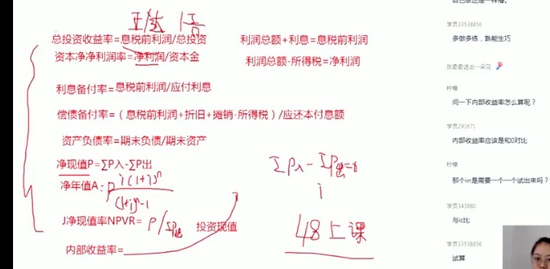 总投资收益率=息税前利润/总投资
利润总额+利息=息税前利润
资本净净利润率=净利润/资本金
利润总额-所得税=净利润
利息备付率=息税前利润/应付利息
偿债备付率=（息税前利润+折旧+摊销-所得税）/应还本付息额
资产负债率=期末负债/期末资产
净现值P=ΣP入-ΣP出
ΣP入-ΣP出=0
i
净年值A：P i(1+i)^n
(1+i)^n-1
净现值率NPVR= P/ΣP 投资现值
48上课
内部收益率=
学员33538656
多做多练，熟能生巧
柠檬
问一下内部收益率怎么算呢？
学员291671
内部收益率应该是和0对比
柠檬
那个irr是需要一个一个试出来吗？
学员341880
与ic比
学员33538656
试算